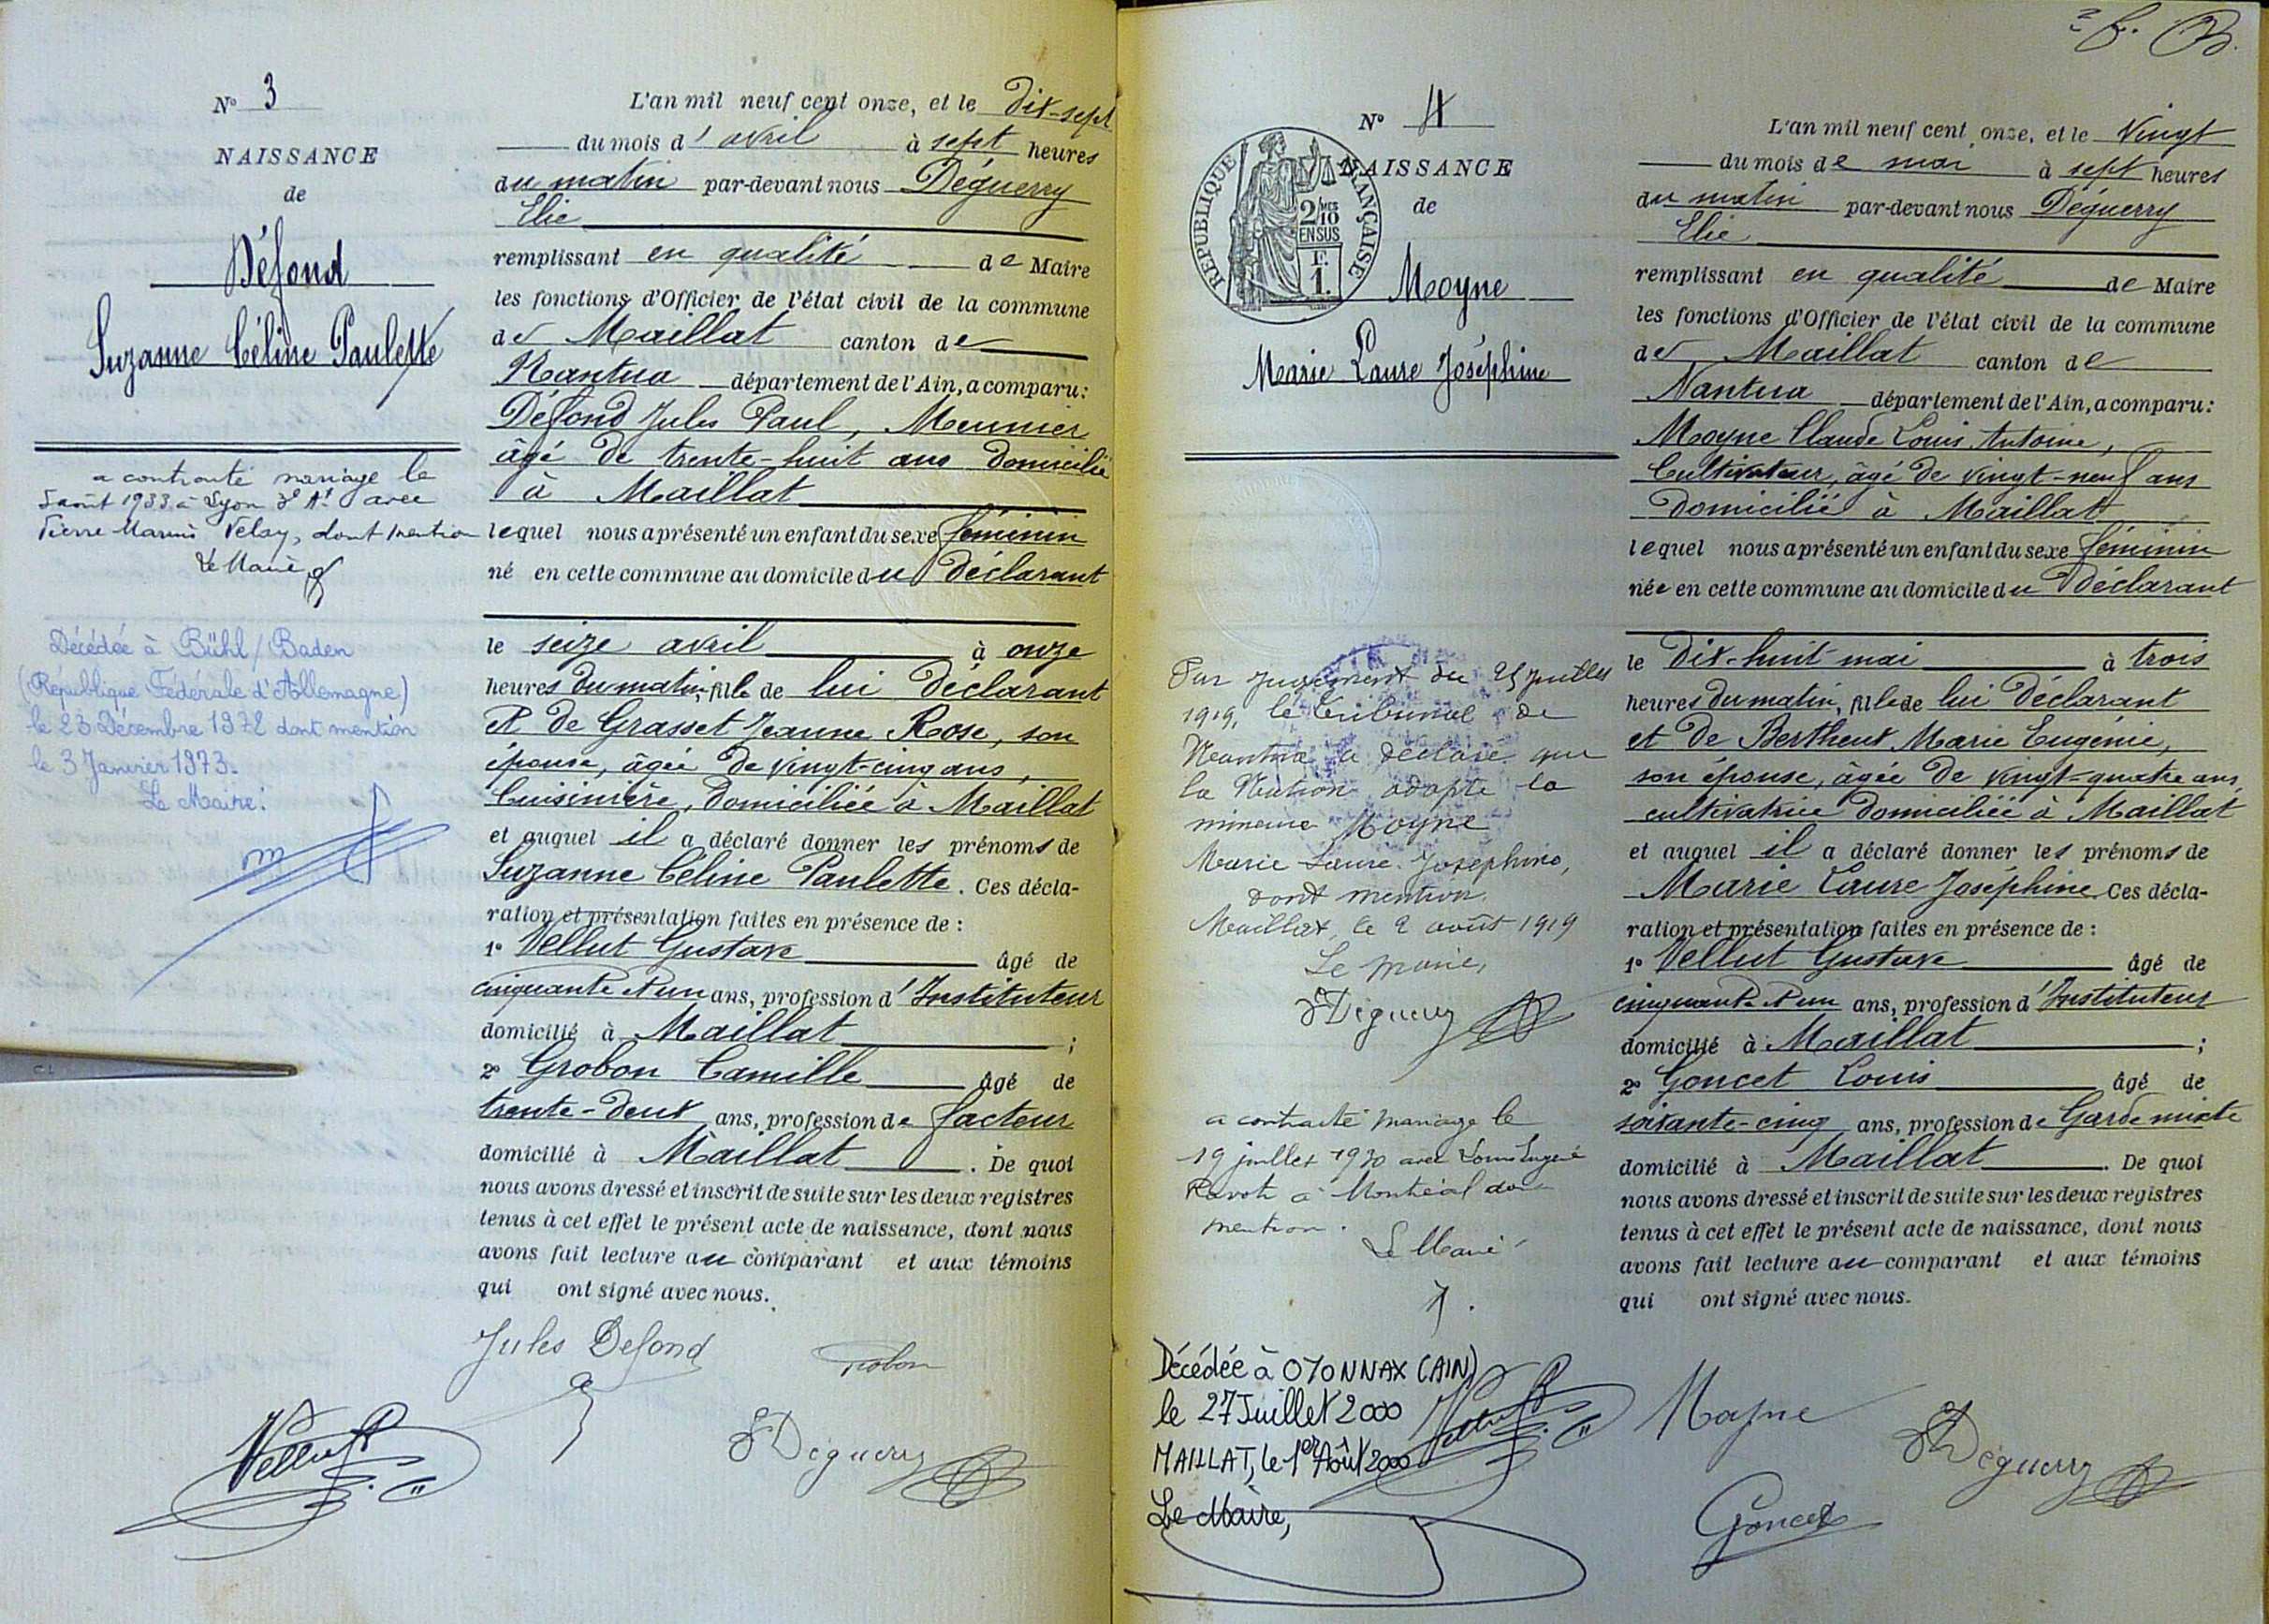 N° 3
NAISSANCE
de
Défond
Suzanne Céline Paulette
a contracté mariage le
5 août 1933 à Lyon 3e At avec
Pierre Marius Velay, dont mention
Le Maire
Décédée à Bühl/Baden
(République Fédérale d'Allemagne)
le 23 Décembre 1972 dont mention
le 3 Janvier 1973.
Le Maire:
L'an mil neuf cent onze, et le Dix-sept
du mois d'avril à sept heures
du matin par-devant nous Déguerry
Elie
remplissant en qualité de Maire
les fonctions d'Officier de l'état civil de la commune
de Maillat canton de
Nantua département de l'Ain, a comparu:
Défond Jules Paul, Meunier
âgé de trente-huit ans domicilié
à Maillat
lequel nous a présenté un enfant du sexe féminin
né en cette commune au domicile du déclarant
le seize avril à onze
heures du matin, fille de lui Déclarant
et de Grasset Jeanne Rose, son
épouse, âgée de vingt-cinq ans,
Cuisinière, domiciliée à Maillat
et auquel il a déclaré donner les prénoms de
Suzanne Céline Paulette. Ces décla-
ration et présentation faites en présence de :
1° Vellut Gustave âgé de
cinquante et un ans, profession d'Instituteur
domicilié à Maillat ;
2° Grobon Camille âgé de
trente-deux ans, profession de facteur
domicilié à Maillat. De quoi
nous avons dressé et inscrit de suite sur les deux registres
tenus à cet effet le présent acte de naissance, dont nous
avons fait lecture au comparant et aux témoins
qui ont signé avec nous.
Jules Defond
Grobon
Vellut
Déguerry
2 f. B.
N° 4
NAISSANCE
de
RÉPUBLIQUE FRANÇAISE
2/10 MES
EN SUS
1F.
Moyne
Marie Laure Joséphine
Par jugement du 25 juillet
1919, le tribunal de
Nantua a déclaré que
la Nation adopte la
mineure Moyne
Marie Laure Joséphine,
dont mention.
Maillat, le 2 août 1919
Le maire,
Déguerry
a contracté mariage le
19 juillet 1930 avec Louis Eugène
Ravot à Montréal dont
mention.
Le Maire
Décédée à OYONNAX (AIN)
le 27 Juillet 2000
MAILLAT, le 1er Août 2000
Le Maire,
L'an mil neuf cent onze, et le Vingt
du mois de mai à sept heures
du matin par-devant nous Déguerry
Elie
remplissant en qualité de Maire
les fonctions d'Officier de l'état civil de la commune
de Maillat canton de
Nantua département de l'Ain, a comparu:
Moyne Claude Louis Antoine,
Cultivateur, âgé de vingt-neuf ans
Domicilié à Maillat
lequel nous a présenté un enfant du sexe féminin
née en cette commune au domicile du Déclarant
le Dix-huit mai à trois
heures du matin, fille de lui Déclarant
et de Bertheux Marie Eugénie,
son épouse, âgée de vingt-quatre ans,
cultivatrice domiciliée à Maillat
et auquel il a déclaré donner les prénoms de
Marie Laure Joséphine. Ces décla-
ration et présentation faites en présence de :
1° Vellut Gustave âgé de
cinquante et un ans, profession d'Instituteur
domicilié à Maillat ;
2° Goncet Louis âgé de
soixante-cinq ans, profession de Garde mixte
domicilié à Maillat. De quoi
nous avons dressé et inscrit de suite sur les deux registres
tenus à cet effet le présent acte de naissance, dont nous
avons fait lecture au comparant et aux témoins
qui ont signé avec nous.
Vellut
Moyne
Déguerry
Goncet